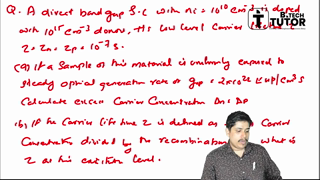 Q. A direct band gap S.C with ni = 10^10 cm^-3 is doped
with 10^15 cm^-3 donors, its low level carrier
τ = τn = τp = 10^-7 s.
B.TECH
TUTOR
(a) If a sample of this material is uniformly exposed to
steady optical generation rate of gop = 2×10^22 EHP/cm^3 s
Calculate excess Carrier Concentration Δn = Δp
(b) If the Carrier life time τ is defined as Carrier
Concentration divided by the recombination what is
τ at this excitation level.